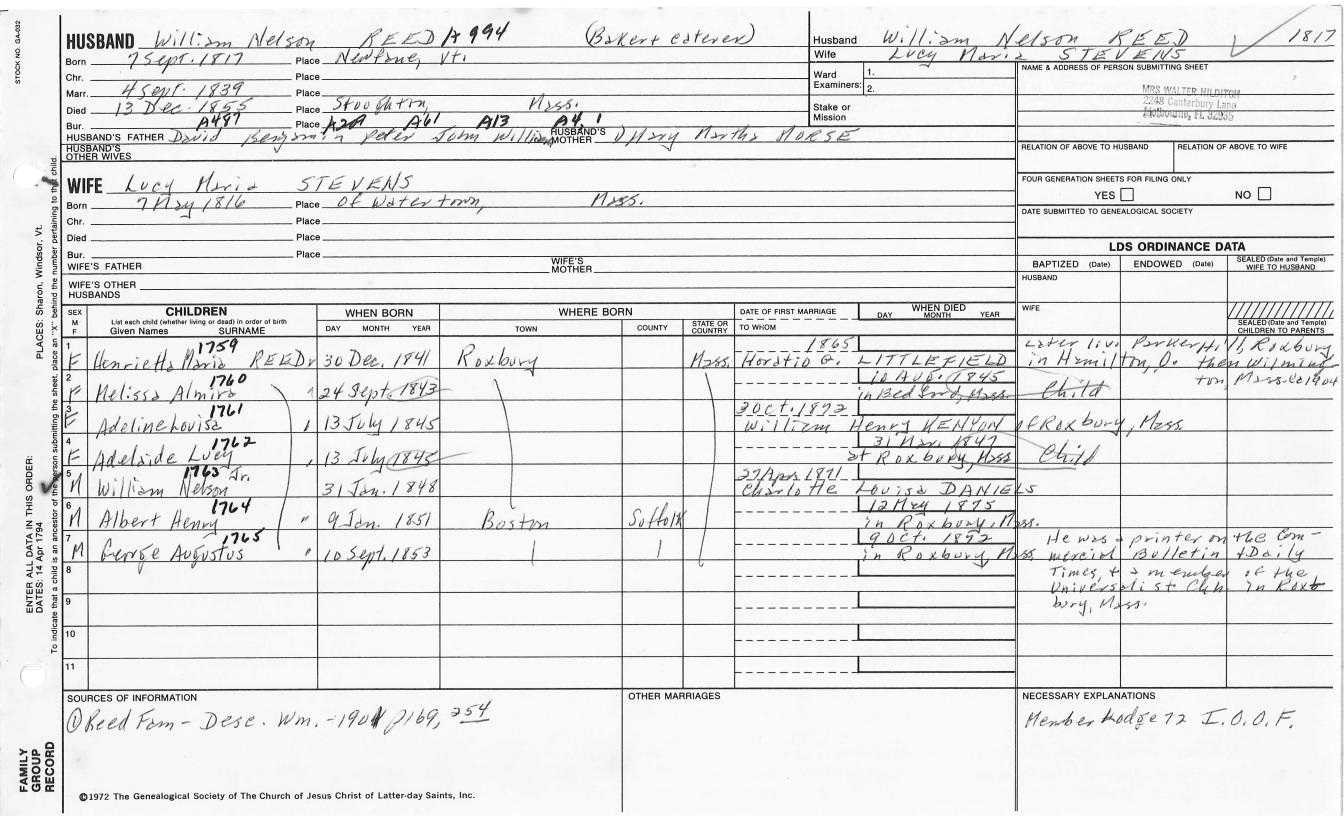 STOCK NO. GA-032
HUSBAND William Nelson REED A994 (Baker & Caterer)
Born 7 Sept. 1817 Place Newfane, Vt.
Chr. Place
Marr. 4 Sept. 1839 Place
Died 13 Dec. 1855 Place Stoughton, Mass.
Bur. A487 Place A2A A61 A13 A4.1
HUSBAND'S FATHER David Benjamin Peter John William HUSBAND'S MOTHER Mary Martha MORSE
HUSBAND'S OTHER WIVES
Husband William Nelson REED 1817
Wife Lucy Maria STEVENS
Ward Examiners: 1.
2.
Stake or Mission
NAME & ADDRESS OF PERSON SUBMITTING SHEET
MRS WALTER HILDITCH
2248 Canterbury Lane
Melbourne, Fl. 32935
RELATION OF ABOVE TO HUSBAND RELATION OF ABOVE TO WIFE
FOUR GENERATION SHEETS FOR FILING ONLY
YES NO
DATE SUBMITTED TO GENEALOGICAL SOCIETY
WIFE Lucy Maria STEVENS
Born 7 May 1816 Place of Watertown, Mass.
Chr. Place
Died Place
Bur. Place
WIFE'S FATHER WIFE'S MOTHER
WIFE'S OTHER HUSBANDS
LDS ORDINANCE DATA
BAPTIZED (Date) ENDOWED (Date) SEALED (Date and Temple) WIFE TO HUSBAND
HUSBAND
WIFE
SEALED (Date and Temple) CHILDREN TO PARENTS
SEX M F
CHILDREN
List each child (whether living or dead) in order of birth
Given Names SURNAME
WHEN BORN
DAY MONTH YEAR
WHERE BORN
TOWN COUNTY STATE OR COUNTRY
DATE OF FIRST MARRIAGE
TO WHOM
WHEN DIED
DAY MONTH YEAR
1 F Henrietta Maria 1759 REED 30 Dec. 1841 Roxbury Mass. 1865
Horatio G. LITTLEFIELD
Later live Parker Hill, Roxbury
in Hamilton, O. then Wilming
ton, Mass. 1904
2 F Melissa Almira 1760 " 24 Sept. 1843 10 Aug. 1845
in Bedford, Mass. Child
3 F Adeline Lovisa 1761 " 13 July 1845 3 Oct. 1872
William Henry KENYON of Roxbury, Mass.
4 F Adelaide Lucy 1762 " 13 July 1845 31 Mar. 1847
at Roxbury, Mass Child
5 M William Nelson Jr. 1763 31 Jan. 1848 27 Apr. 1871
Charlotte Louisa DANIELS
6 M Albert Henry 1764 " 9 Jan. 1851 Boston Suffolk 12 May 1875
in Roxbury, Mass.
7 M George Augustus 1765 " 10 Sept. 1853 9 Oct. 1872
in Roxbury, Mass
He was a printer on the Com-
mercial Bulletin & Daily
Times, & a member of the
Universalist Chh. in Rox
bury, Mass.
8
9
10
11
SOURCES OF INFORMATION
① Reed Fam - Desc. Wm. - 1901 p169, 254
OTHER MARRIAGES
NECESSARY EXPLANATIONS
Member Lodge 72 I.O.O.F.
©1972 The Genealogical Society of The Church of Jesus Christ of Latter-day Saints, Inc.
FAMILY GROUP RECORD
ENTER ALL DATA IN THIS ORDER:
DATES: 14 Apr 1794 PLACES: Sharon, Windsor, Vt.
To indicate that a child is an ancestor of the person submitting the sheet, place an "X" behind the number pertaining to that child.